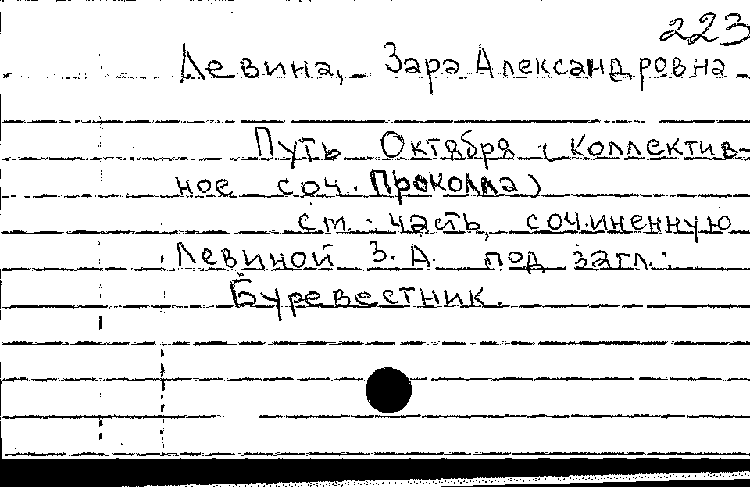 223
Левина, Зара Александровна
Путь Октября (Коллектив-
ное соч. Проколла)
см. часть, сочиненную
Левиной З. А. под загл.:
Буревестник.